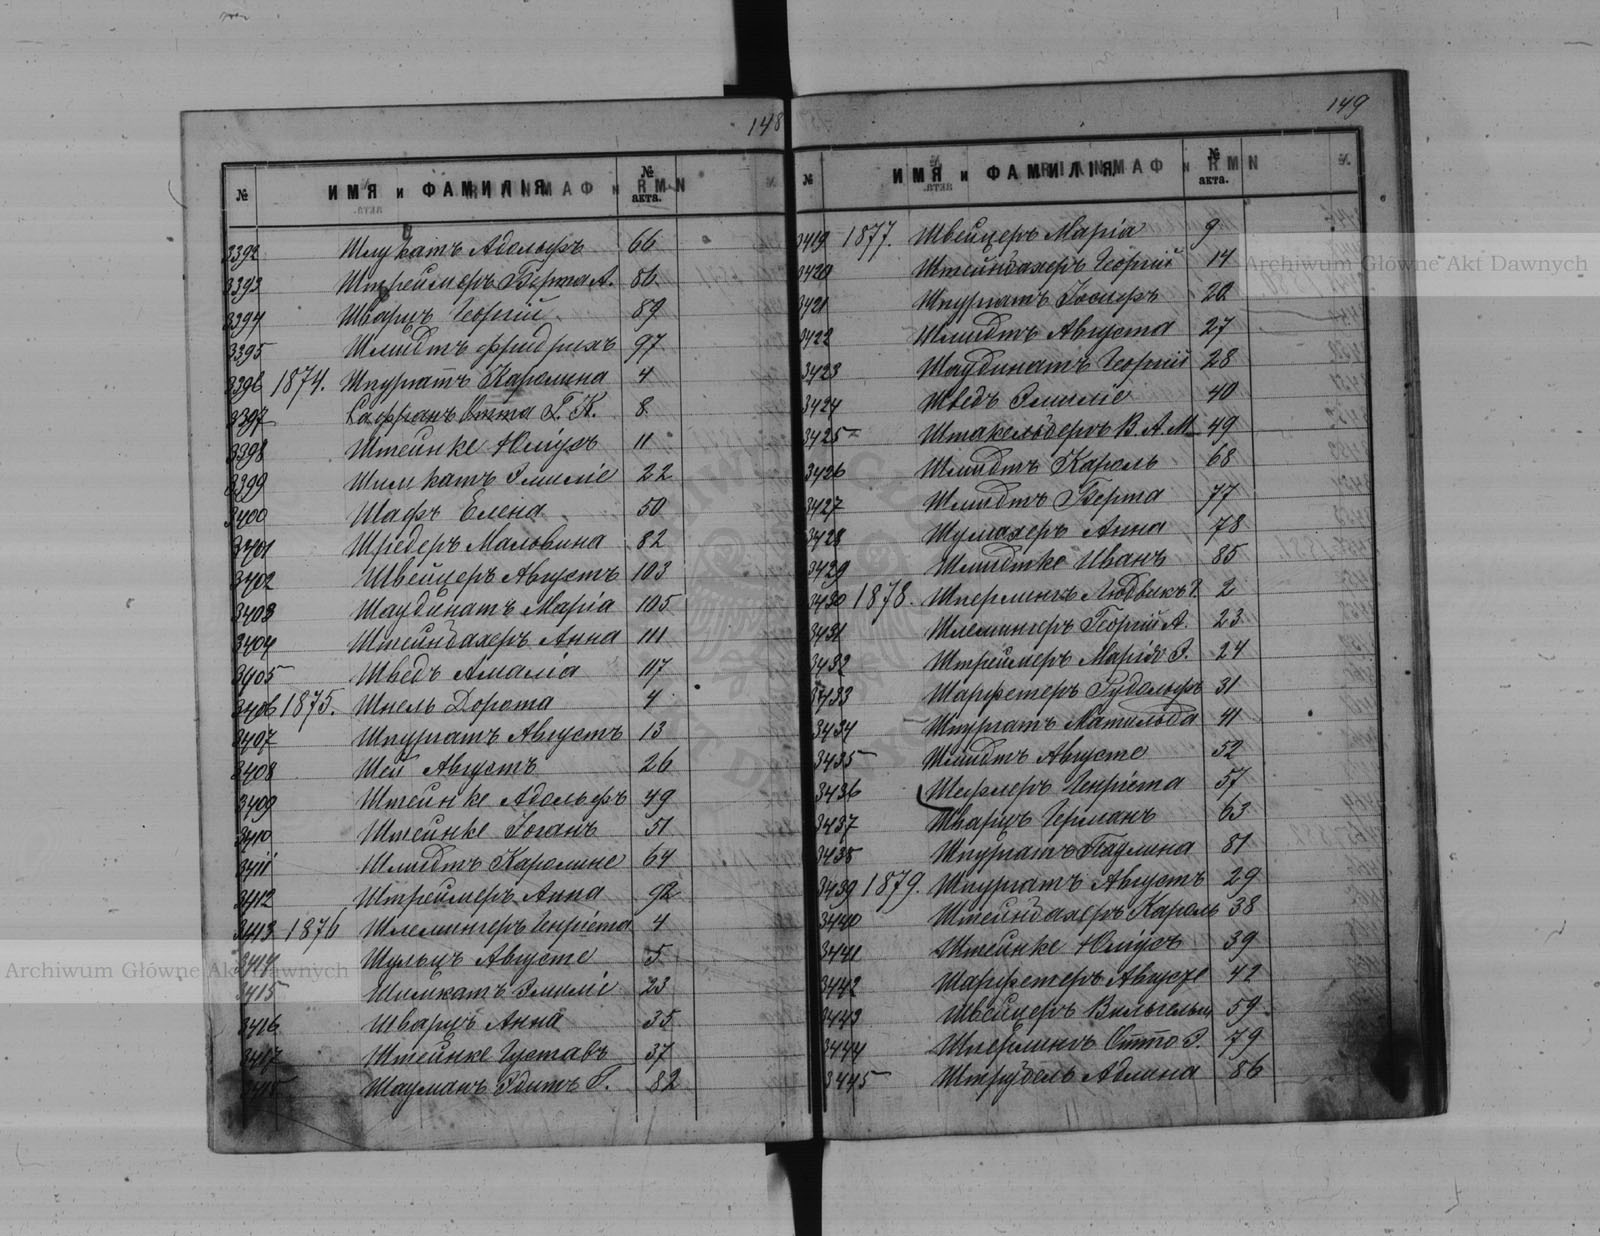 148
№ ИМЯ и ФАМИЛІЯ № акта.
3392 Шлукатъ Адольфъ 66
3393 Штреймеръ Берта А. 86
3394 Шварцъ Георгій 89
3395 Шмидтъ Фридрихъ 97
3396 1874. Шпургатъ Каролина 4
3397 Сафранъ Отта Г. К. 8
3398 Штейнке Юліусъ 11
3399 Шимкатъ Эмиліе 22
3400 Шафъ Елена 50
3401 Шрёдеръ Маловина 82
3402 Швейцеръ Августъ 103
3403 Шаудинатъ Марія 105
3404 Штейнбахеръ Анна 111
3405 Шведъ Амалія 117
3406 1875. Шнель Дорота 4
3407 Шпургатъ Августъ 13
3408 Шей Августъ 26
3409 Штейнке Адольфъ 49
3410 Штейнке Іоганъ 51
3411 Шмидтъ Каролине 64
3412 Штреймеръ Анна 92
3413 1876 Шлемингеръ Генріета 4
3414 Шульцъ Августе 5
3415 Шимкатъ Эмиліе 23
3416 Шварцъ Анна 35
3417 Штейнке Густавъ 37
3418 Шауманъ Эдитъ Г. 82
149
№ ИМЯ и ФАМИЛІЯ № акта.
3419 1877. Швейцеръ Марія 9
3420 Штейнбахеръ Георгій 14
3421 Шпургатъ Іосифъ 20
3422 Шмидтъ Августа 27
3423 Шаудинатъ Георгій 28
3424 Шведъ Эмиліе 40
3425 Штакельбергъ В. А. М. 49
3426 Шмидтъ Кароль 68
3427 Шмидтъ Берта 77
3428 Шумахеръ Анна 78
3429 Шмидтке Иванъ 85
3430 1878. Шперлингъ Людвикъ 2
3431 Шлемингеръ Георгій А. 23
3432 Штреймеръ Марія Э. 24
3433 Шарфетеръ Рудольфъ 31
3434 Шпургатъ Матильда 41
3435 Шмидтъ Августе 52
3436 Шефлеръ Генріета 57
3437 Шварцъ Германъ 63
3438 Шпургатъ Паулина 81
3439 1879. Шпургатъ Августъ 29
3440 Штейнбахеръ Кароль 38
3441 Штейнке Юліусъ 39
3442 Шарфетеръ Августе 42
3443 Швейцеръ Вильгельм 59
3444 Шперлингъ Отто Э. 79
3445 Штрубель Адлина 86
Archiwum Główne Akt Dawnych
Archiwum Główne Akt Dawnych